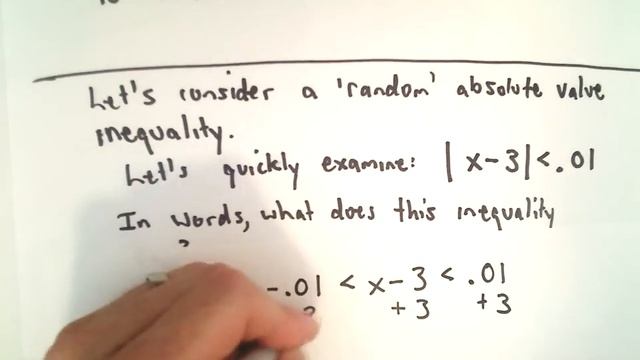 Let's consider a 'random' absolute value
inequality.
Let's quickly examine: |x-3|<.01
In words, what does this inequality
?
-.01 < x-3 < .01
+3 +3